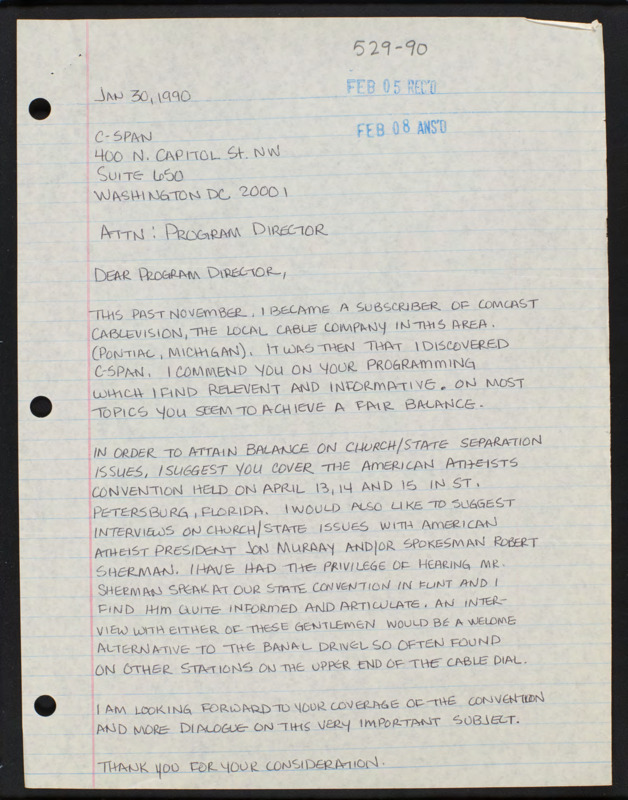 529-90
JAN 30, 1990
FEB 05 REC'D
FEB 08 ANS'D
C-SPAN
400 N. CAPITOL St. NW
SUITE 650
WASHINGTON DC 20001
ATTN: PROGRAM DIRECTOR
DEAR PROGRAM DIRECTOR,
THIS PAST NOVEMBER, I BECAME A SUBSCRIBER OF COMCAST
CABLEVISION, THE LOCAL CABLE COMPANY IN THIS AREA.
(PONTIAC, MICHIGAN). IT WAS THEN THAT I DISCOVERED
C-SPAN. I COMMEND YOU ON YOUR PROGRAMMING
WHICH I FIND RELEVENT AND INFORMATIVE. ON MOST
TOPICS YOU SEEM TO ACHIEVE A FAIR BALANCE.
IN ORDER TO ATTAIN BALANCE ON CHURCH/STATE SEPARATION
ISSUES, I SUGGEST YOU COVER THE AMERICAN ATHEISTS
CONVENTION HELD ON APRIL 13, 14 AND 15 IN ST.
PETERSBURG, FLORIDA. I WOULD ALSO LIKE TO SUGGEST
INTERVIEWS ON CHURCH/STATE ISSUES WITH AMERICAN
ATHEIST PRESIDENT JON MURRAY AND/OR SPOKESMAN ROBERT
SHERMAN. I HAVE HAD THE PRIVILEGE OF HEARING MR.
SHERMAN SPEAK AT OUR STATE CONVENTION IN FLINT AND I
FIND HIM QUITE INFORMED AND ARTICULATE. AN INTER-
VIEW WITH EITHER OF THESE GENTLEMEN WOULD BE A WELOME
ALTERNATIVE TO THE BANAL DRIVEL SO OFTEN FOUND
ON OTHER STATIONS ON THE UPPER END OF THE CABLE DIAL.
I AM LOOKING FORWARD TO YOUR COVERAGE OF THE CONVENTION
AND MORE DIALOGUE ON THIS VERY IMPORTANT SUBJECT.
THANK YOU FOR YOUR CONSIDERATION.